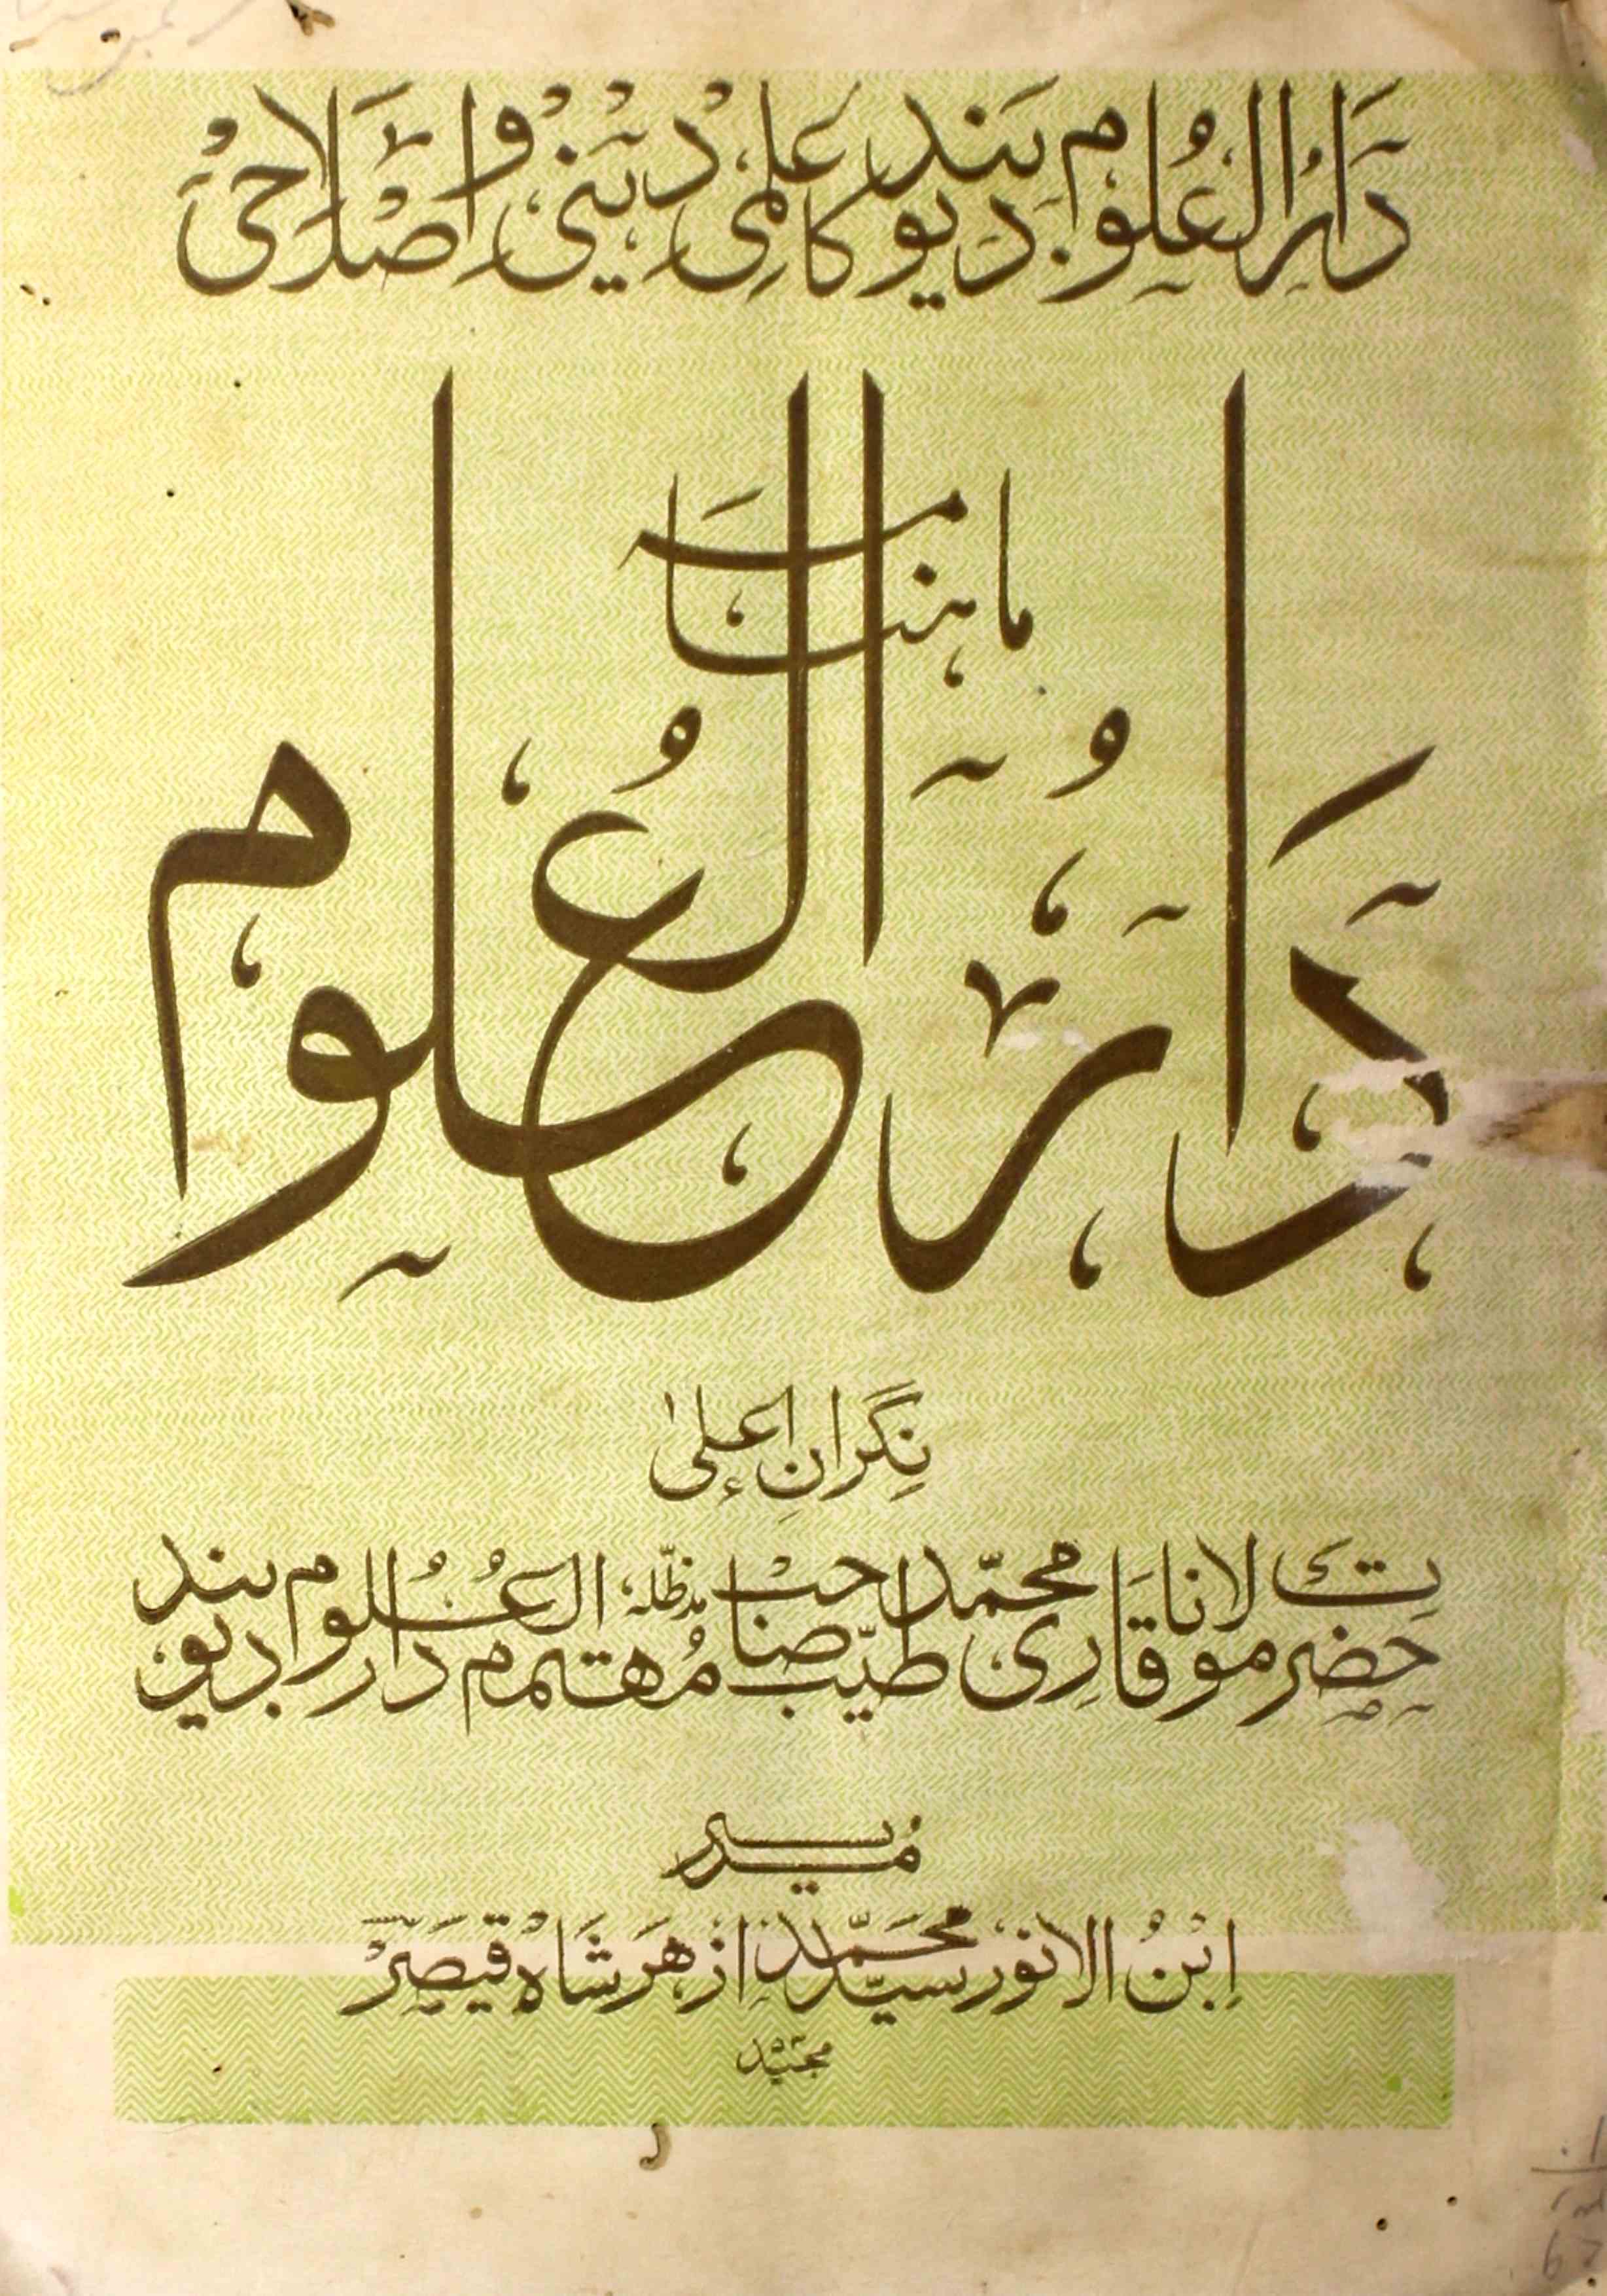 دَارُ العُلوم دیوبند کا علمی دینی و اصلاحی
ماہنامہ
دَارُالعُلوم
نِگرانِ اعلیٰ
حضرت مولانا قاری محمّد طیّب صاحب مدظلّہٗ مُهتمم دارالعُلوم دیوبند
مُدیر
اِبنُ الانور سیّد محمّد ازهر شاہ قیصر